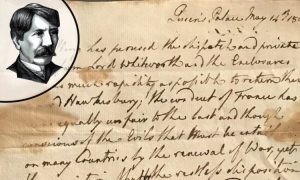 Queen's Palace May 14th 180
has perused the dispatch and private
from Lord Whitworth and the Enclosures
as much rapidity as possible to return them
d Hawkesbury; the conduct of France has
equally unfair to the last and though
conscious of the Evils that must be entail
on many Countries by the renewal of War, yet
the restless disposition